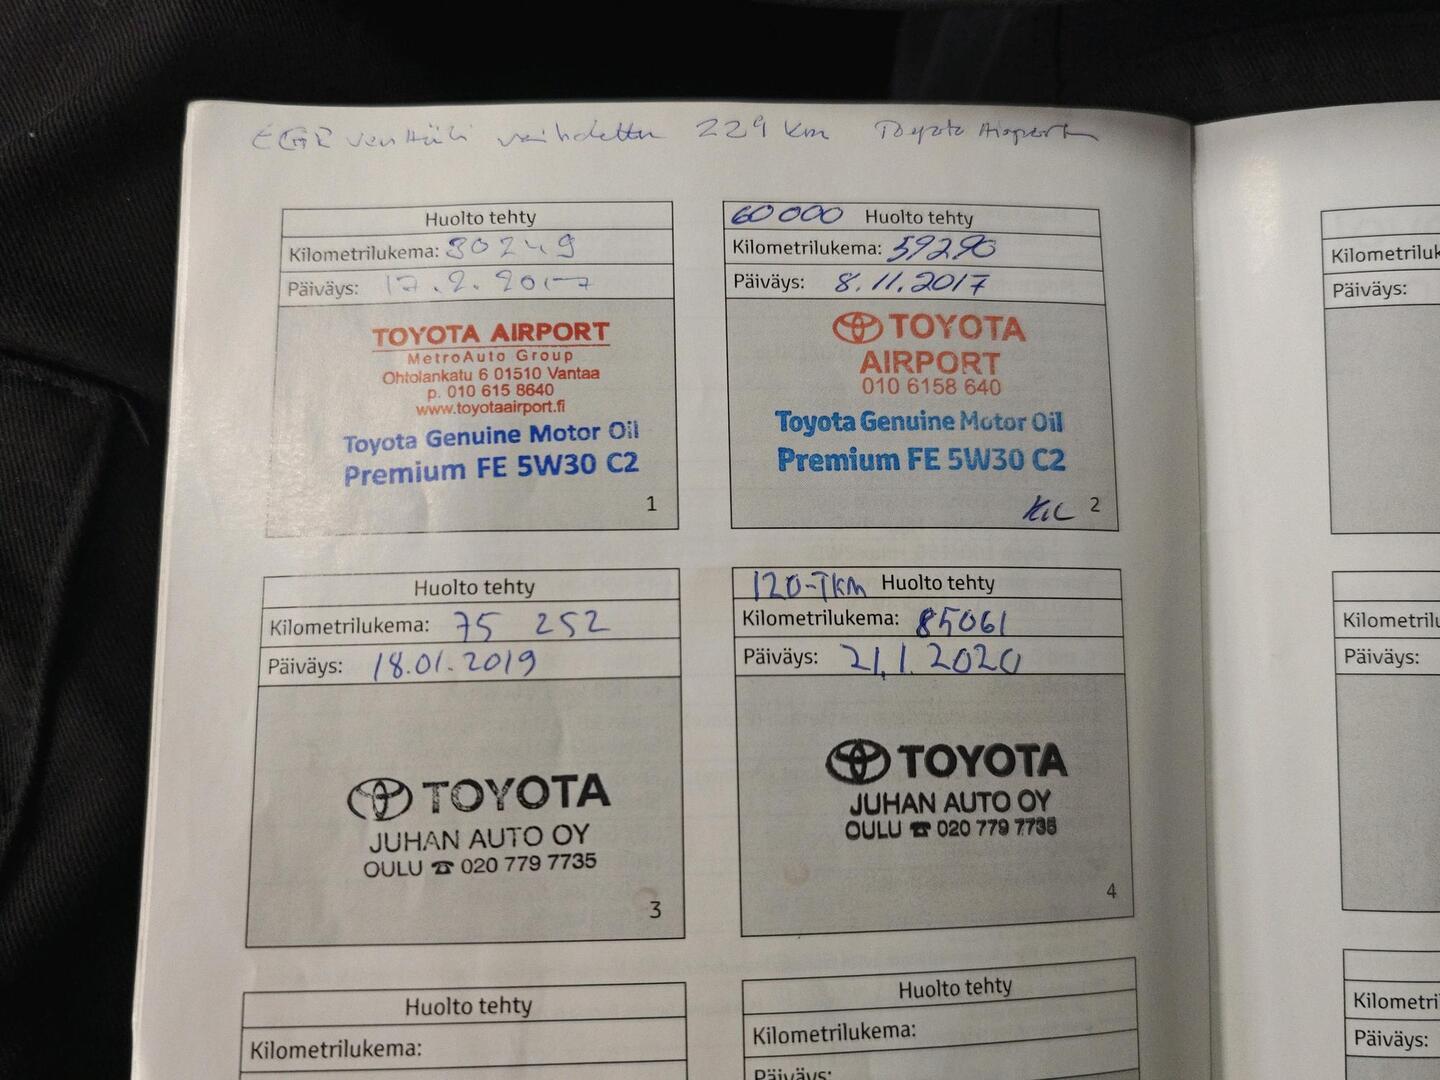 EGR venttiili vaihdettu 229 km Toyota Airport
Huolto tehty
Kilometrilukema: 30249
Päiväys: 17.2.2017
TOYOTA AIRPORT
MetroAuto Group
Ohtolankatu 6 01510 Vantaa
p. 010 615 8640
www.toyotaairport.fi
Toyota Genuine Motor Oil
Premium FE 5W30 C2
1
60000 Huolto tehty
Kilometrilukema: 59290
Päiväys: 8.11.2017
TOYOTA
AIRPORT
010 6158 640
Toyota Genuine Motor Oil
Premium FE 5W30 C2
2
Huolto tehty
Kilometrilukema: 75 252
Päiväys: 18.01.2019
TOYOTA
JUHAN AUTO OY
OULU ☎ 020 779 7735
3
120-Tkm Huolto tehty
Kilometrilukema: 85061
Päiväys: 21.1.2020
TOYOTA
JUHAN AUTO OY
OULU ☎ 020 779 7735
4
Huolto tehty
Kilometrilukema:
Huolto tehty
Kilometrilukema:
Päiväys:
Kilometriluk
Päiväys:
Kilometrilu
Päiväys:
Kilometri
Päiväys: